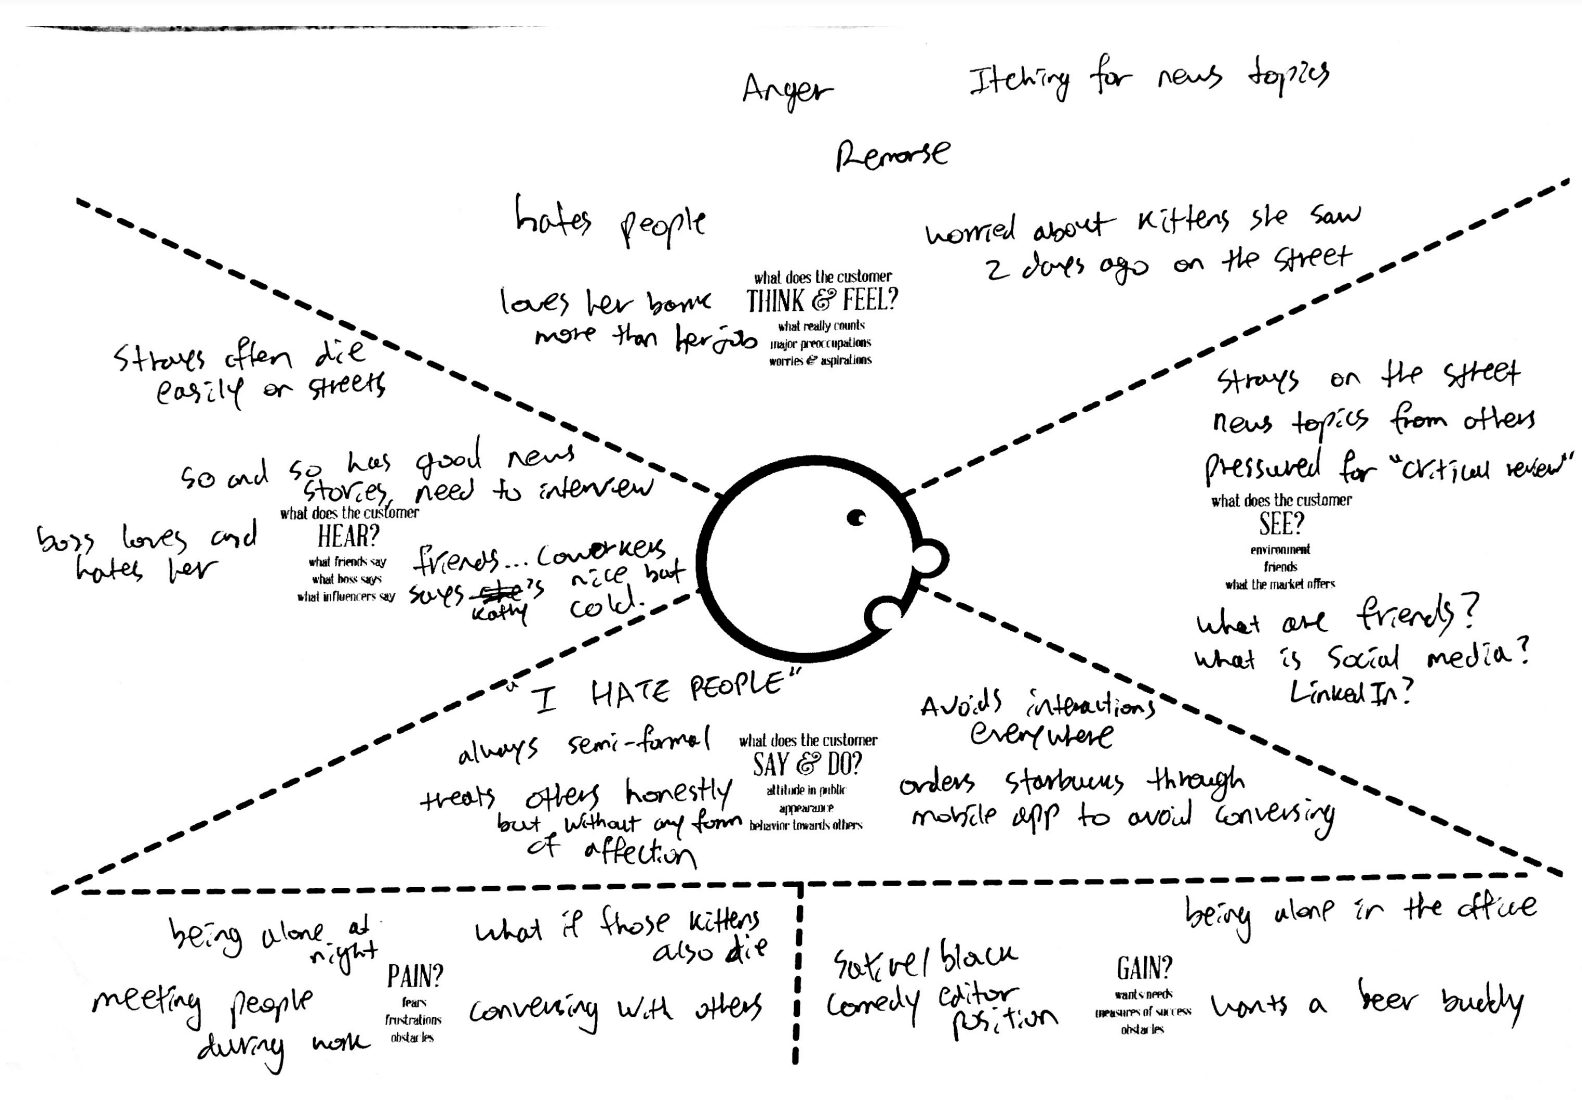 Anger
Itching for news topics
Remorse
hates people
worried about kittens she saw
2 days ago on the street
what does the customer
THINK & FEEL?
what really counts
major preoccupations
worries & aspirations
loves her
more than her job
Strays often die
easily on streets
so and so has good news
stories, need to interview
what does the customer
HEAR?
what friends say
what boss says
what influencers say
boss loves and
hates her
friends... coworkers
says she's nice but
Kathy cold.
Strays on the street
news topics from others
pressured for "critical review"
what does the customer
SEE?
environment
friends
what the market offers
What are friends?
What is Social media?
LinkedIn?
"I HATE PEOPLE"
always semi-formal
treats others honestly
but without any form
of affection
what does the customer
SAY & DO?
attitude in public
appearance
behavior towards others
Avoids interactions
everywhere
orders starbucks through
mobile app to avoid conversing
being alone at
night
meeting people
during work
PAIN?
fears
frustrations
obstacles
What if those kittens
also die
conversing with others
Satire/black
comedy editor
position
GAIN?
wants needs
measures of success
obstacles
being alone in the office
wants a beer buddy